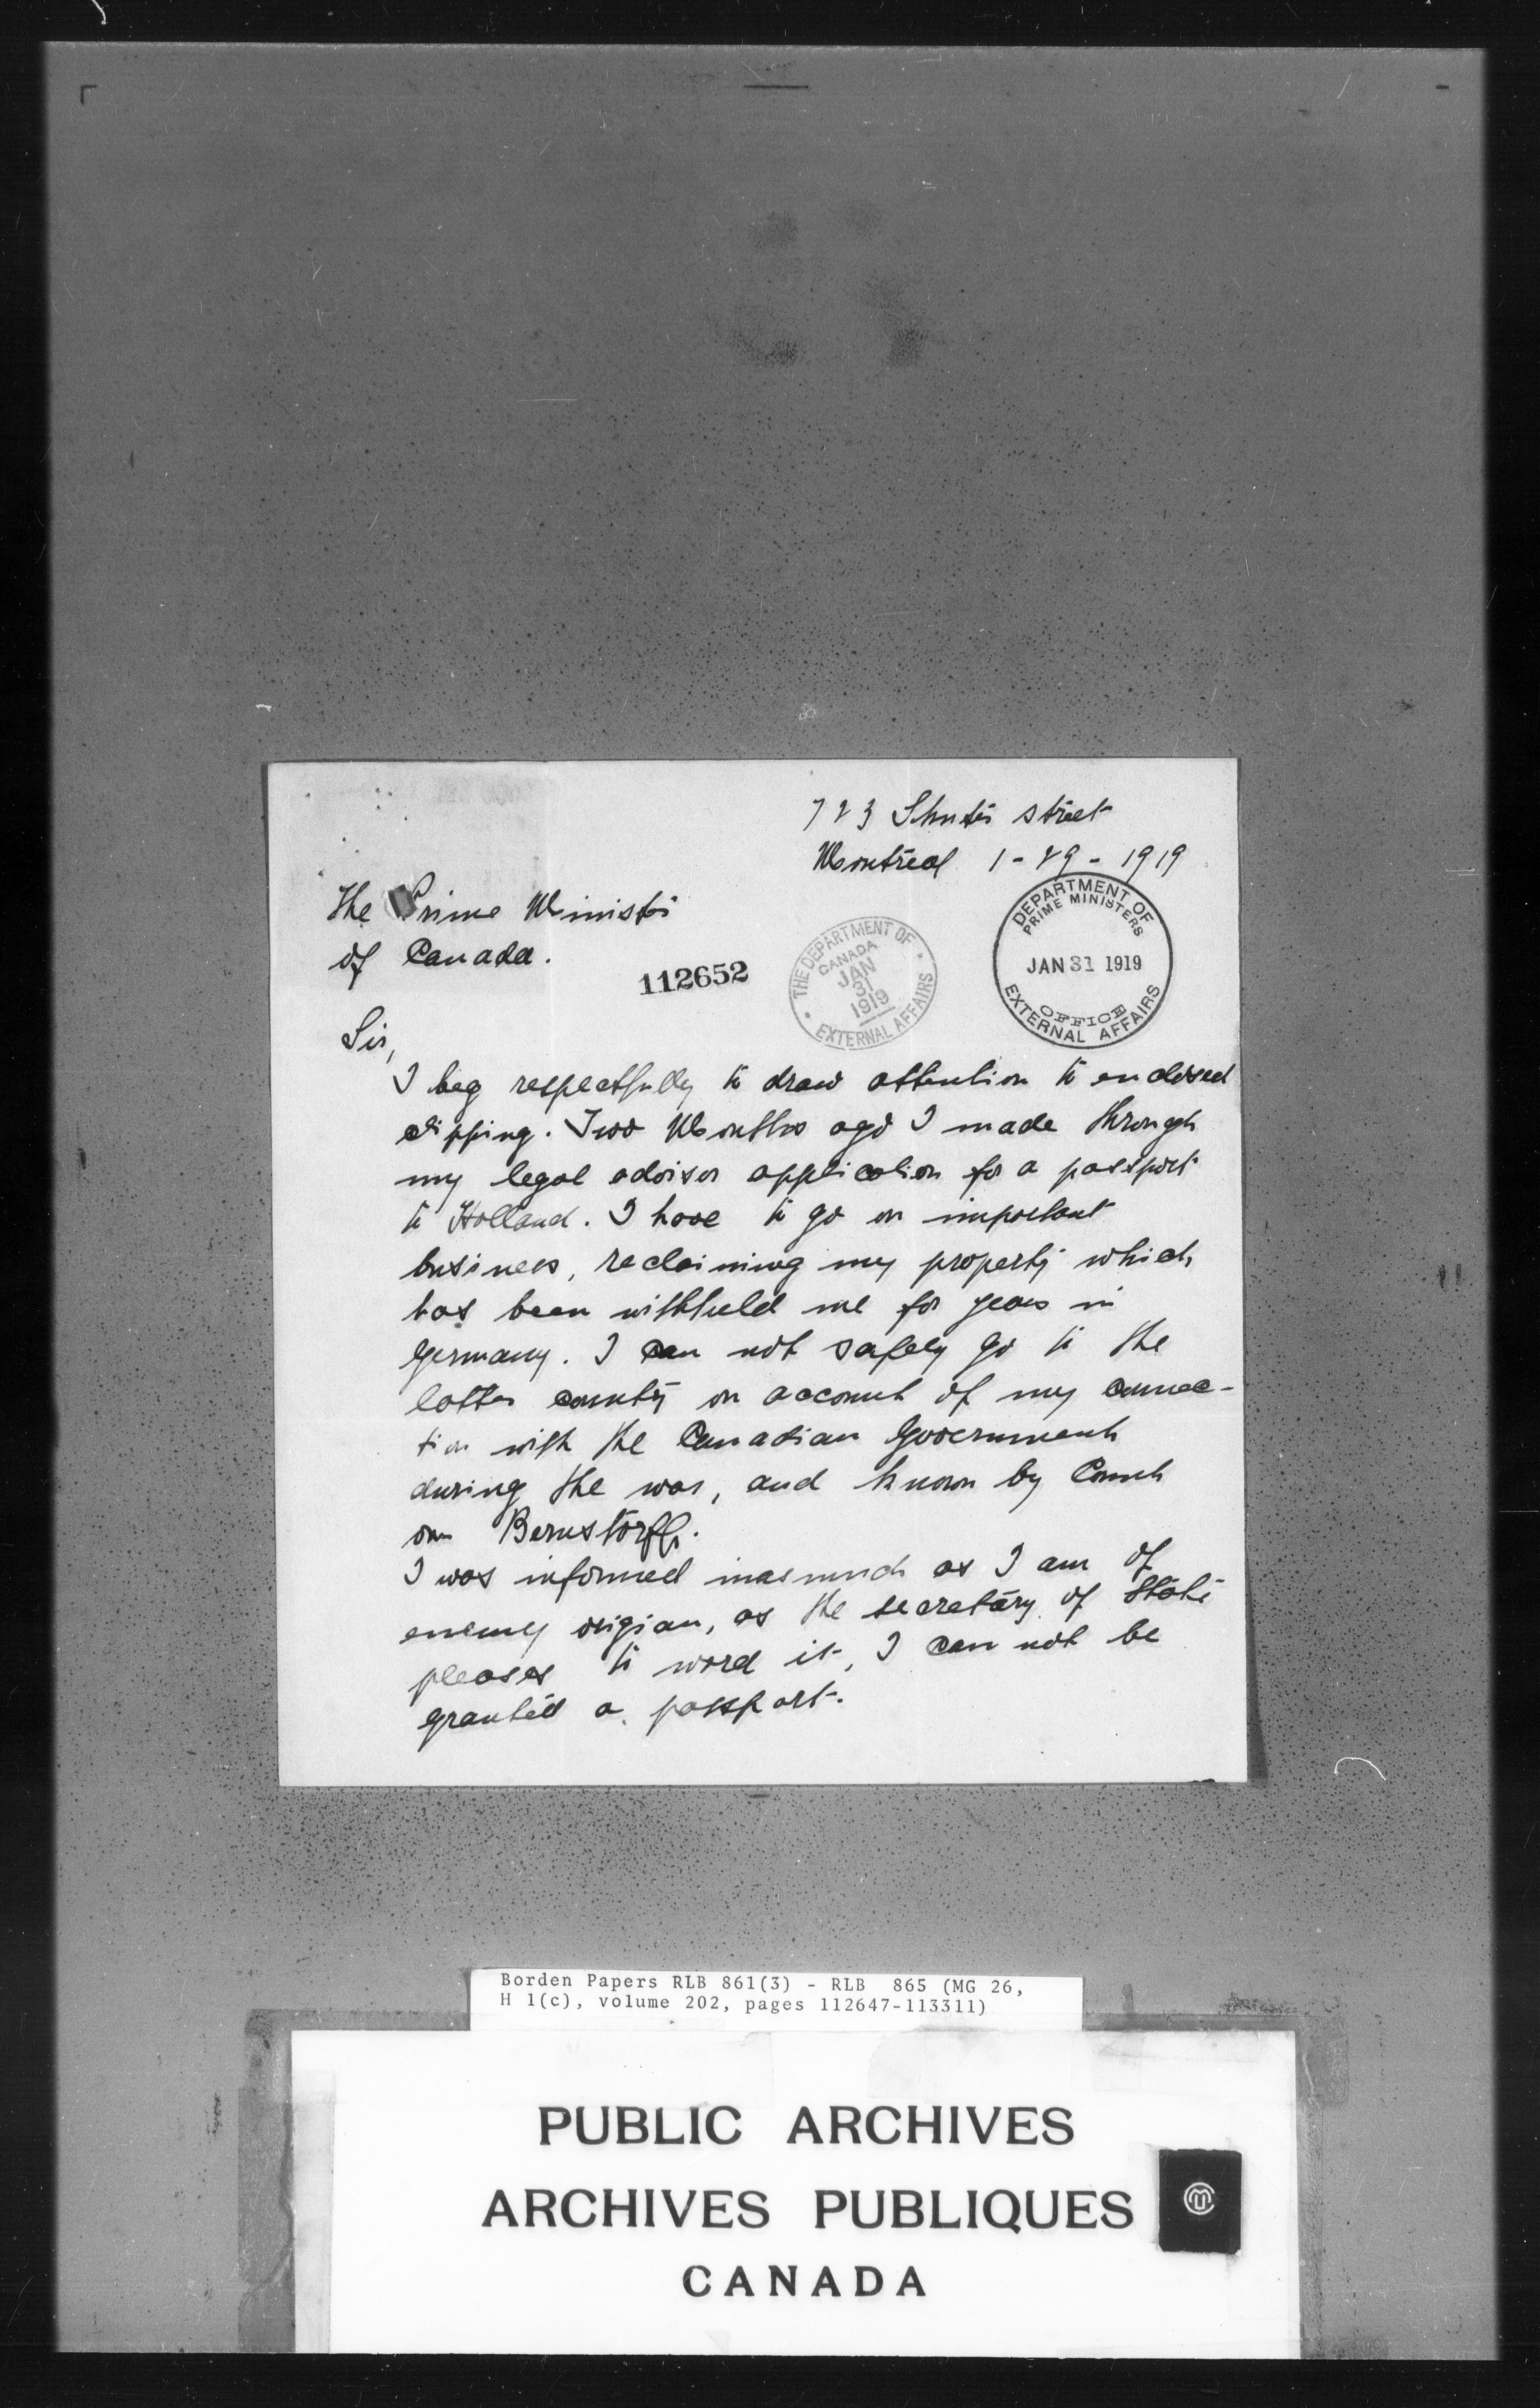 723 Shuter street
Montreal 1-29-1919
The Prime Minister
of Canada.
112652
THE DEPARTMENT OF
CANADA
JAN
31
1919
EXTERNAL AFFAIRS
DEPARTMENT OF
PRIME MINISTERS
JAN 31 1919
OFFICE
EXTERNAL AFFAIRS
Sir,
I beg respectfully to draw attention to enclosed
clipping. Two Months ago I made through
my legal advisor application for a passport
to Holland. I have to go on important
business, reclaiming my property which
has been withheld me for years in
Germany. I can not safely go to the
latter country on account of my connec-
tion with the Canadian Government
during the war, and known by Count
von Bernstorff.
I was informed inasmuch as I am of
enemy origian, as the secretary of State
pleases to word it, I can not be
granted a passport.
Borden Papers RLB 861(3) - RLB 865 (MG 26,
H 1(c), volume 202, pages 112647-113311)
PUBLIC ARCHIVES
ARCHIVES PUBLIQUES
CANADA